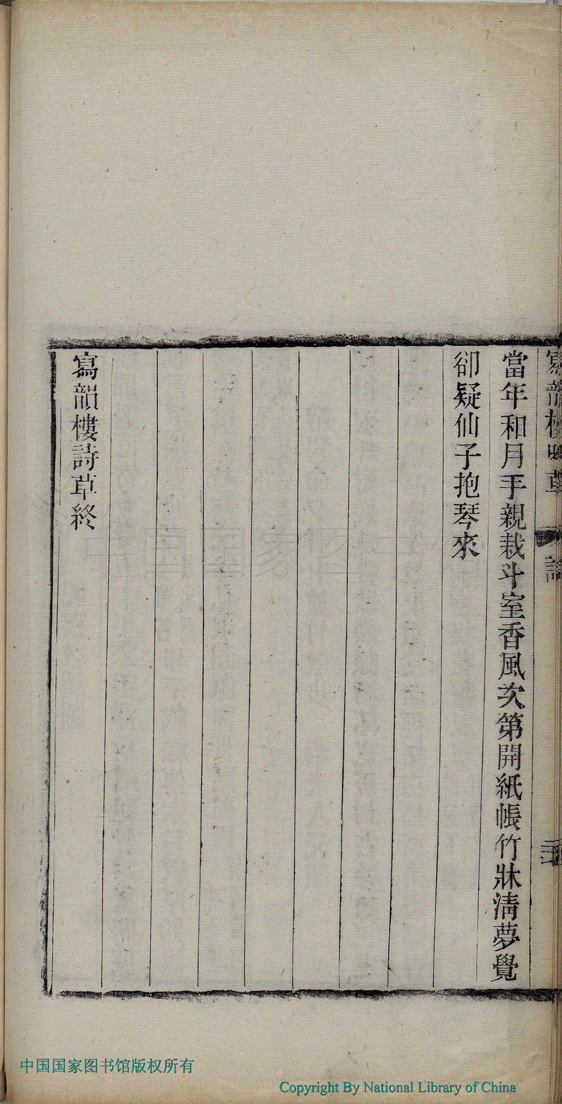 寫韻樓詩草
當年和月手親栽斗室香風次第開紙帳竹牀淸夢覺
卻疑仙子抱琴來
寫韻樓詩草終
中国国家图书馆版权所有
Copyright By National Library of China